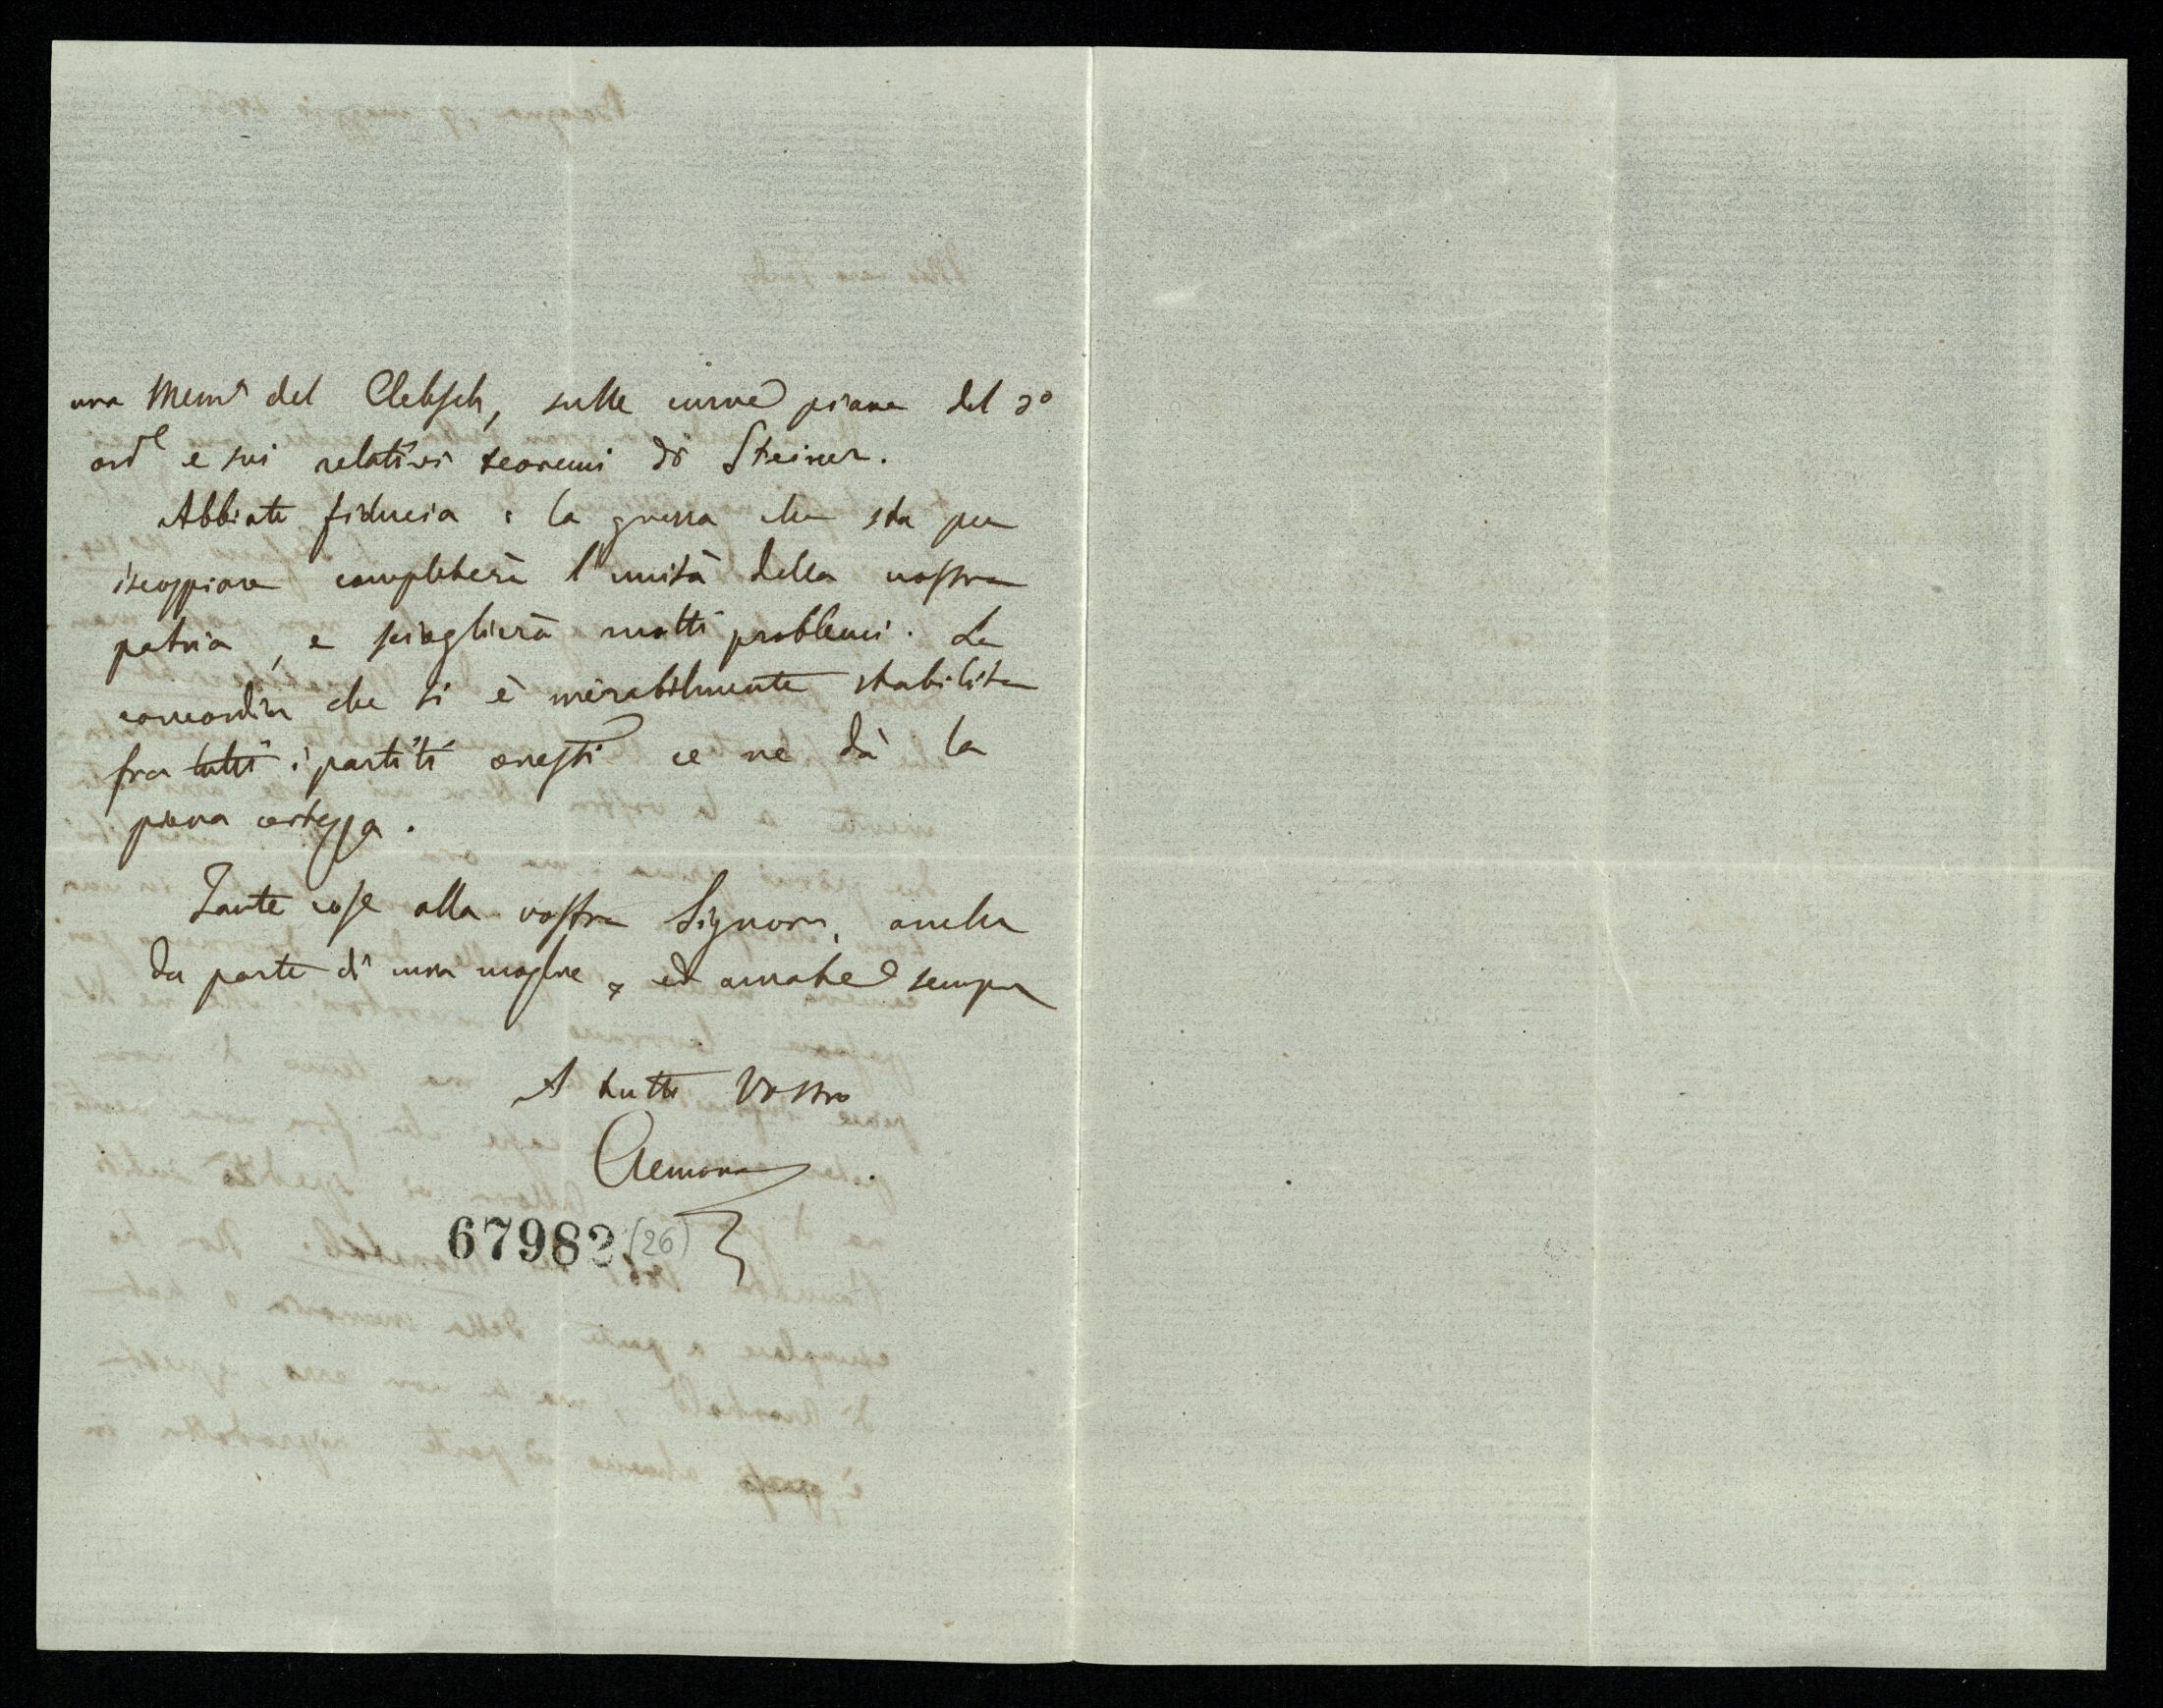 una Mem.ª del Clebsch, sulle curve piane del 3º
ord.e e sui relativi teoremi di Steiner.
Abbiate fiducia: la guerra che sta per
iscoppiare completerà l'unità della nostra
patria, e scioglierà molti problemi. La
concordia che si è mirabilmente stabilita
fra tutti i partiti onesti ce ne dà la
piena certezza.
Tante cose alla vostra Signora, anche
da parte di mia moglie, ed amate sempre
Il tutto vostro
Cremona
67982 (26)